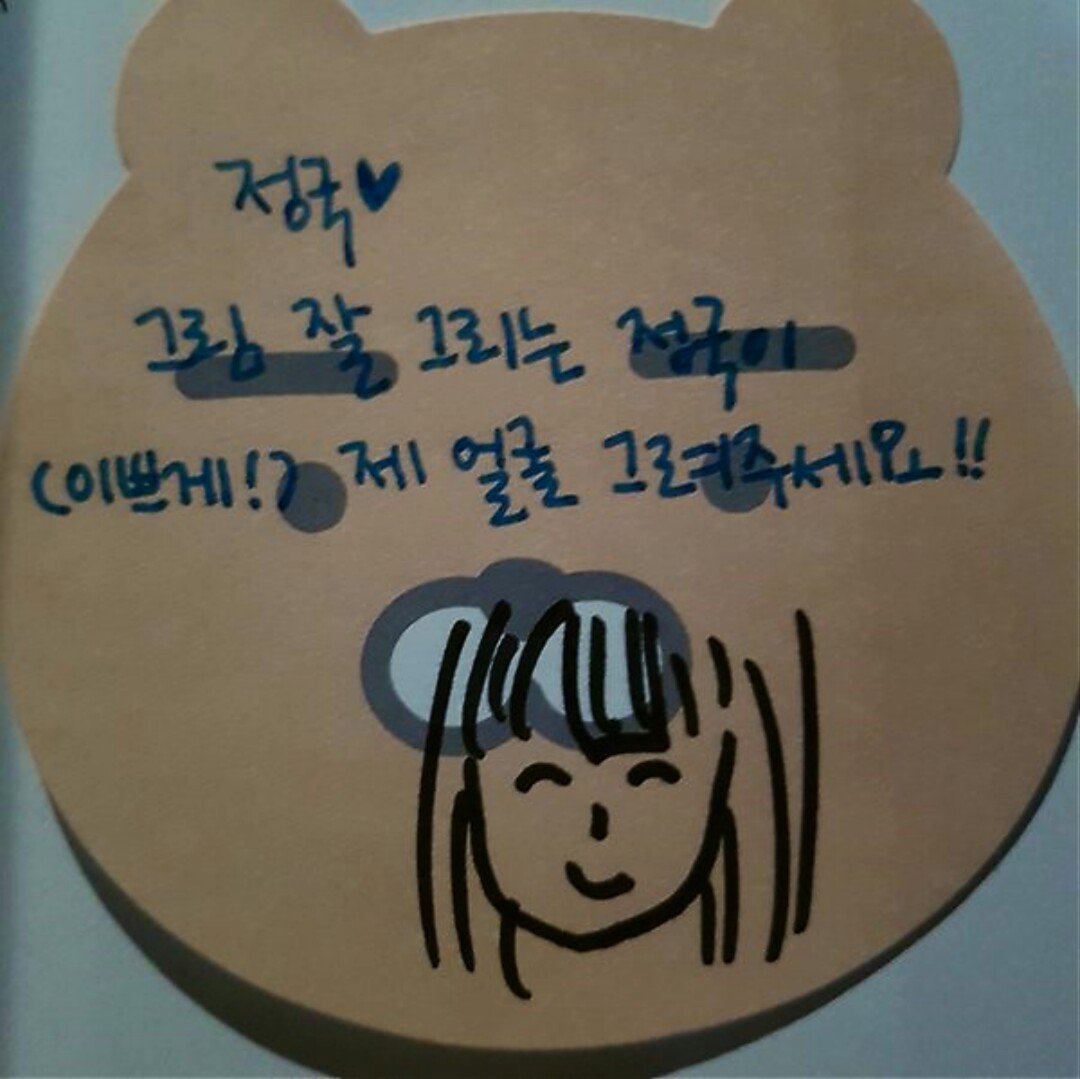 정국♥
그림 잘 그리는 정국이
(이쁘게!) 제 얼굴 그려주세요!!